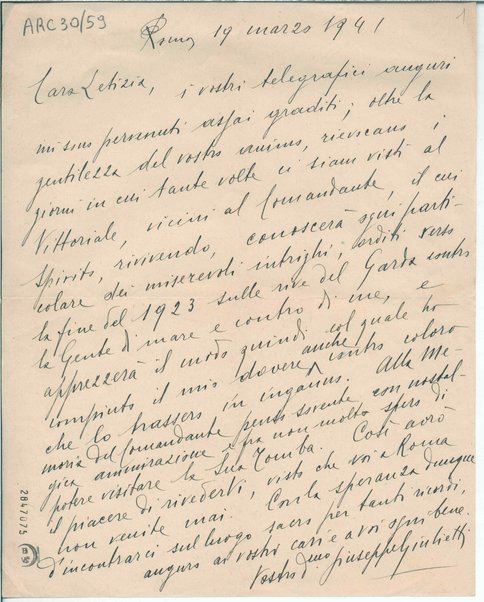 ARC 30/59
1
Roma 19 marzo 1941
Cara Letizia, i vostri telegrafici auguri
mi sono pervenuti assai graditi; oltre la
gentilezza del vostro animo, rievocano i
giorni in cui tante volte ci siam visti al
Vittoriale, vicini al Comandante, il cui
spirito, rivivendo, conoscerà ogni parti-
colare dei miserevoli intrighi, orditi verso
la fine del 1923 sulle rive del Garda contro
la Gente di mare e contro di me, e
apprezzerà il modo quindi col quale ho
compiuto il mio dovere anche contro coloro
che lo trassero in inganno. Alla me-
moria del Comandante penso sovente con nostal-
gica ammirazione e fra non molto spero di
potere visitare la Sua Tomba. Così avrò
il piacere di rivedervi, visto che voi a Roma
non venite mai. Con la speranza dunque
d'incontrarci sul luogo sacro per tanti ricordi,
auguro ai vostri cari e a voi ogni bene.
Vostro dmo Giuseppe Giulietti
2847075